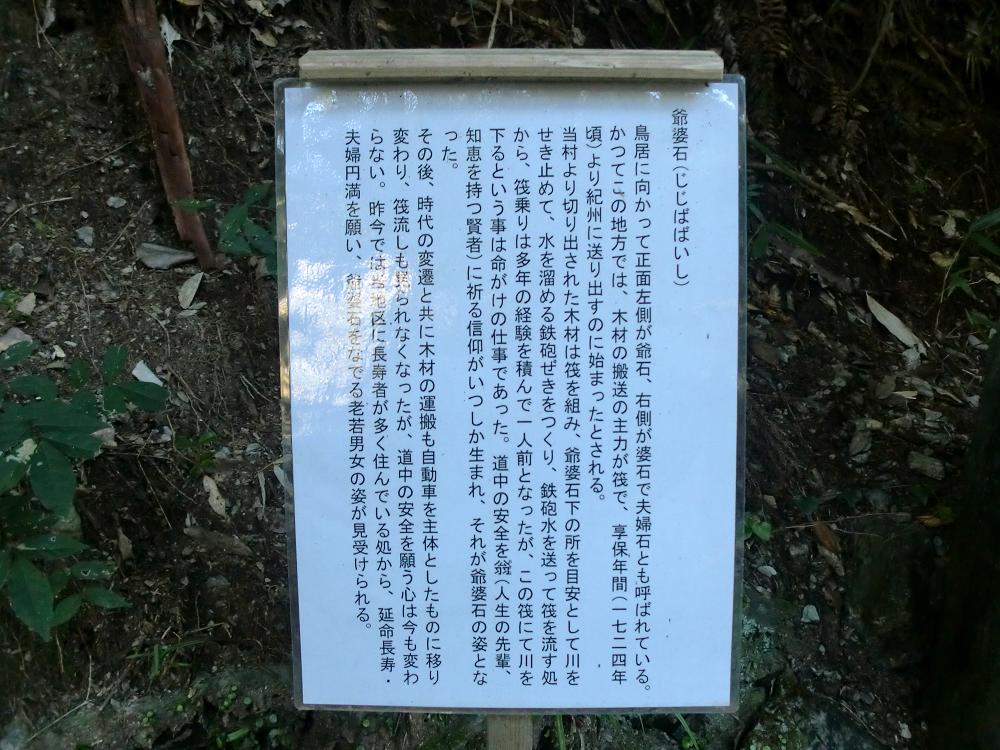 爺婆石（じじばばいし）
鳥居に向かって正面左側が爺石、右側が婆石で夫婦石とも呼ばれている。
かつてこの地方では、木材の搬送の主力が筏で、享保年間（一七二四年
頃）より紀州に送り出すのに始まったとされる。
当村より切り出された木材は筏を組み、爺婆石下の所を目安として川を
せき止めて、水を溜める鉄砲ぜきをつくり、鉄砲水を送って筏を流す処
から、筏乗りは多年の経験を積んで一人前となったが、この筏にて川を
下るという事は命がけの仕事であった。道中の安全を翁（人生の先輩、
知恵を持つ賢者）に祈る信仰がいつしか生まれ、それが爺婆石の姿とな
った。
その後、時代の変遷と共に木材の運搬も自動車を主体としたものに移り
変わり、筏流しも見られなくなったが、道中の安全を願う心は今も変わ
らない。昨今では当地区に長寿者が多く住んでいる処から、延命長寿・
夫婦円満を願い、爺婆石をなでる老若男女の姿が見受けられる。